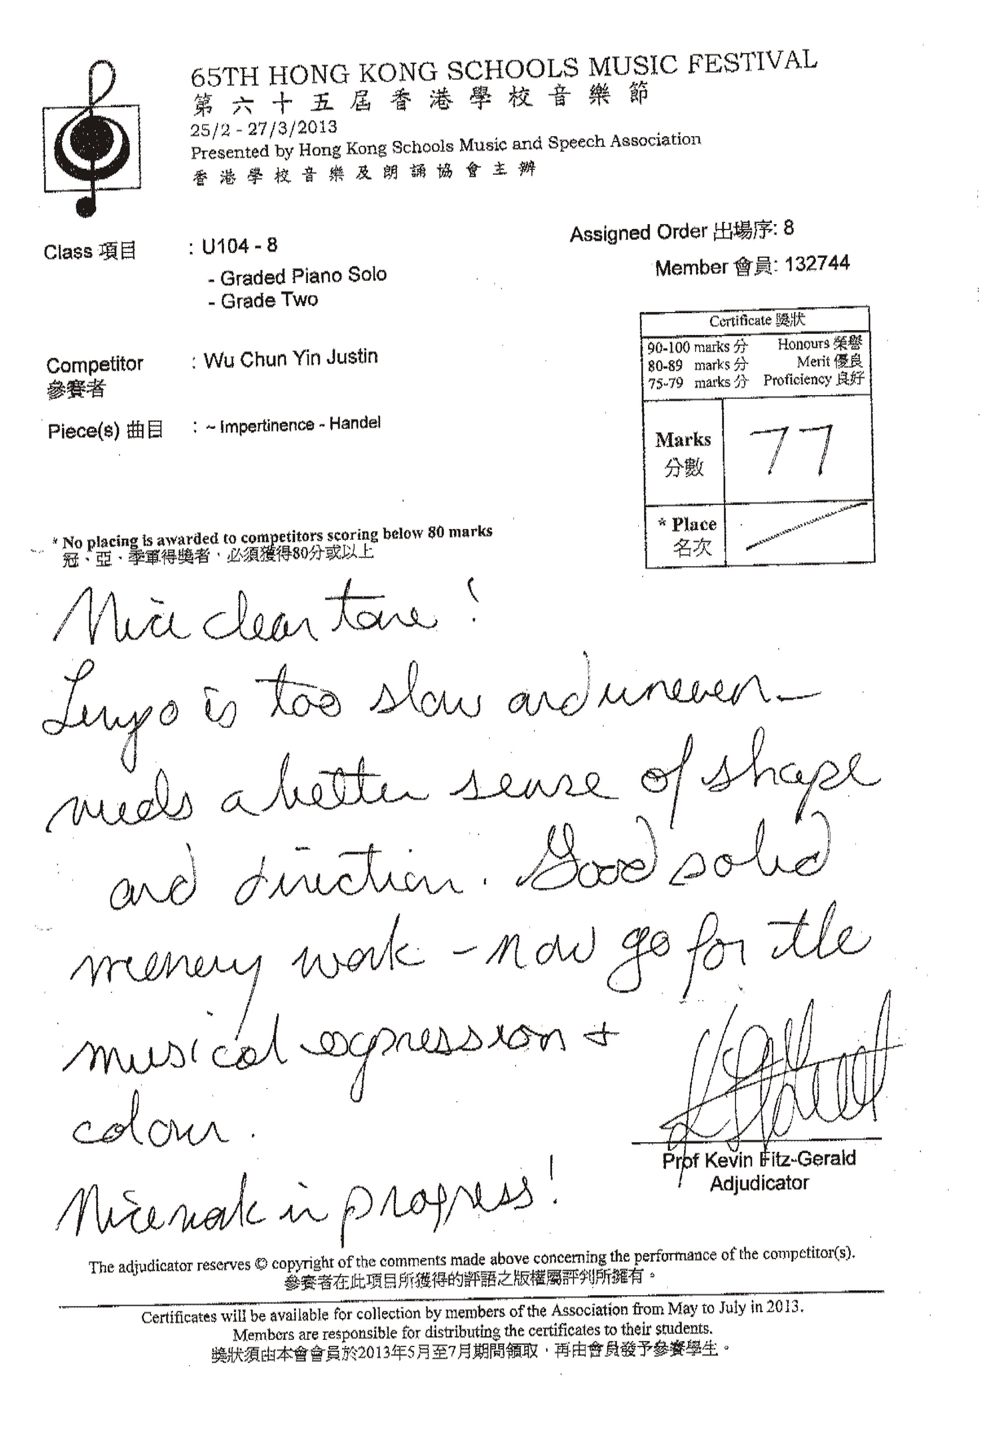 65TH HONG KONG SCHOOLS MUSIC FESTIVAL
第六十五屆香港學校音樂節
25/2 - 27/3/2013
Presented by Hong Kong Schools Music and Speech Association
香港學校音樂及朗誦協會主辦
Class 項目 : U104 - 8
- Graded Piano Solo
- Grade Two
Assigned Order 出場序: 8
Member 會員: 132744
Competitor : Wu Chun Yin Justin
參賽者
Piece(s) 曲目 : ~ Impertinence - Handel
Certificate 獎狀
90-100 marks 分 Honours 榮譽
80-89 marks 分 Merit 優良
75-79 marks 分 Proficiency 良好
Marks 77
分數
* Place
名次
* No placing is awarded to competitors scoring below 80 marks
冠、亞、季軍得獎者，必須獲得80分或以上
Nice clear tone!
Tempo is too slow and uneven -
needs a better sense of shape
and direction. Good solid
memory work - now go for the
musical expression +
colour.
Nice work in progress!
Prof Kevin Fitz-Gerald
Adjudicator
The adjudicator reserves © copyright of the comments made above concerning the performance of the competitor(s).
參賽者在此項目所獲得的評語之版權屬評判所擁有。
Certificates will be available for collection by members of the Association from May to July in 2013.
Members are responsible for distributing the certificates to their students.
獎狀須由本會會員於2013年5月至7月期間領取，再由會員發予參賽學生。